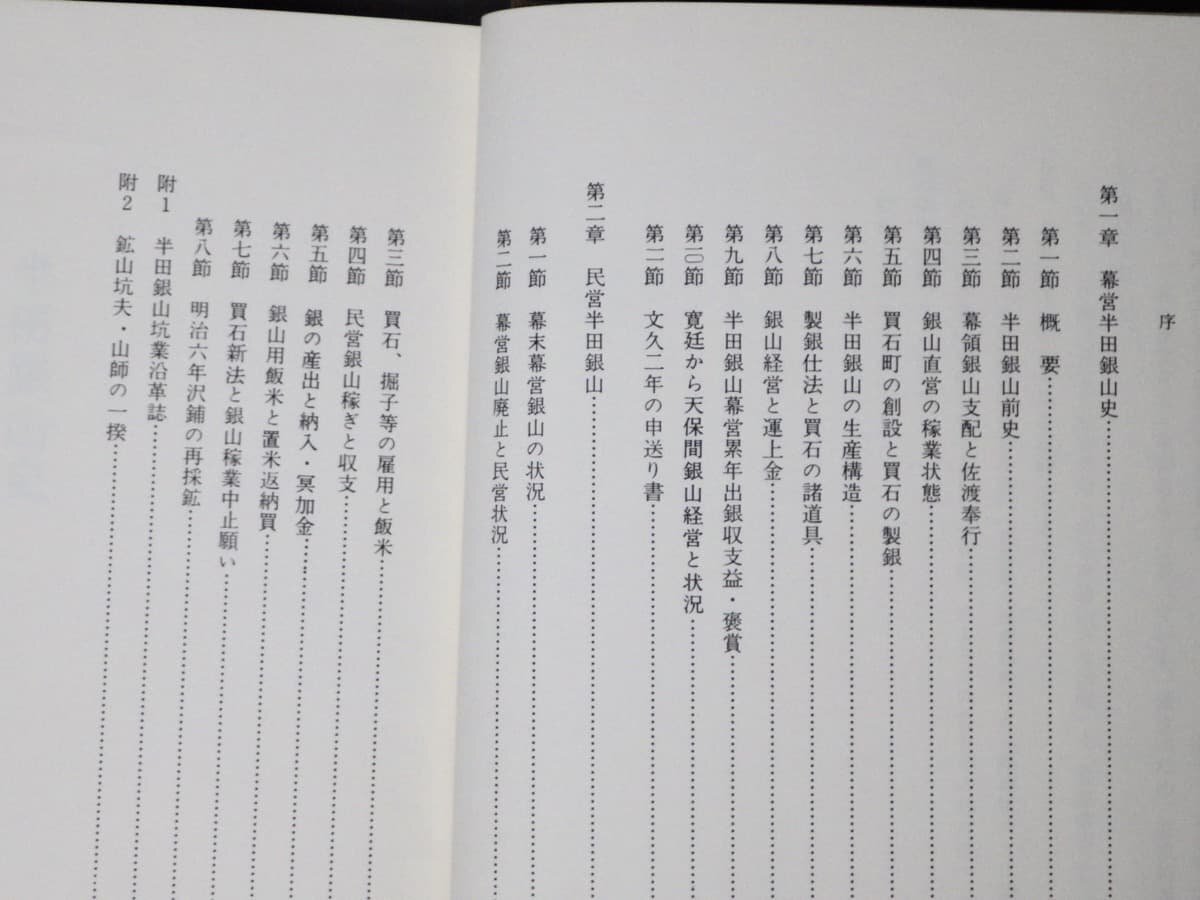 序
第一章 幕営半田銀山史
第一節 概要
第二節 半田銀山前史
第三節 幕領銀山支配と佐渡奉行
第四節 銀山直営の稼業状態
第五節 買石町の創設と買石の製銀
第六節 半田銀山の生産構造
第七節 製銀仕法と買石の諸道具
第八節 銀山経営と運上金
第九節 半田銀山幕営累年出銀収支益・褒賞
第一〇節 寛廷から天保間銀山経営と状況
第一一節 文久二年の申送り書
第二章 民営半田銀山
第一節 幕末幕営銀山の状況
第二節 幕営銀山廃止と民営状況
第三節 買石、掘子等の雇用と飯米
第四節 民営銀山稼ぎと収支
第五節 銀の産出と納入・冥加金
第六節 銀山用飯米と置米返納買
第七節 買石新法と銀山稼業中止願い
第八節 明治六年沢鋪の再採鉱
附1 半田銀山坑業沿革誌
附2 鉱山坑夫・山師の一揆